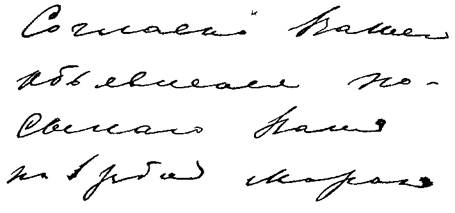 Согласно вашего
объявления по-
сылаю вам
на 1 рубль марок